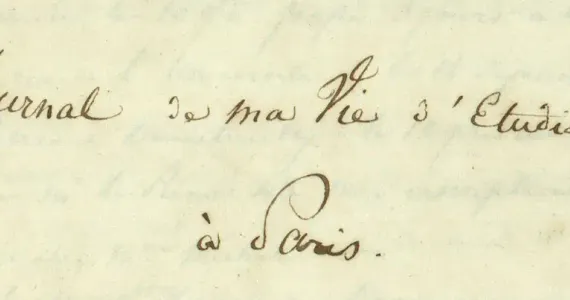 urnal de ma Vie d'Etudi
à Paris.